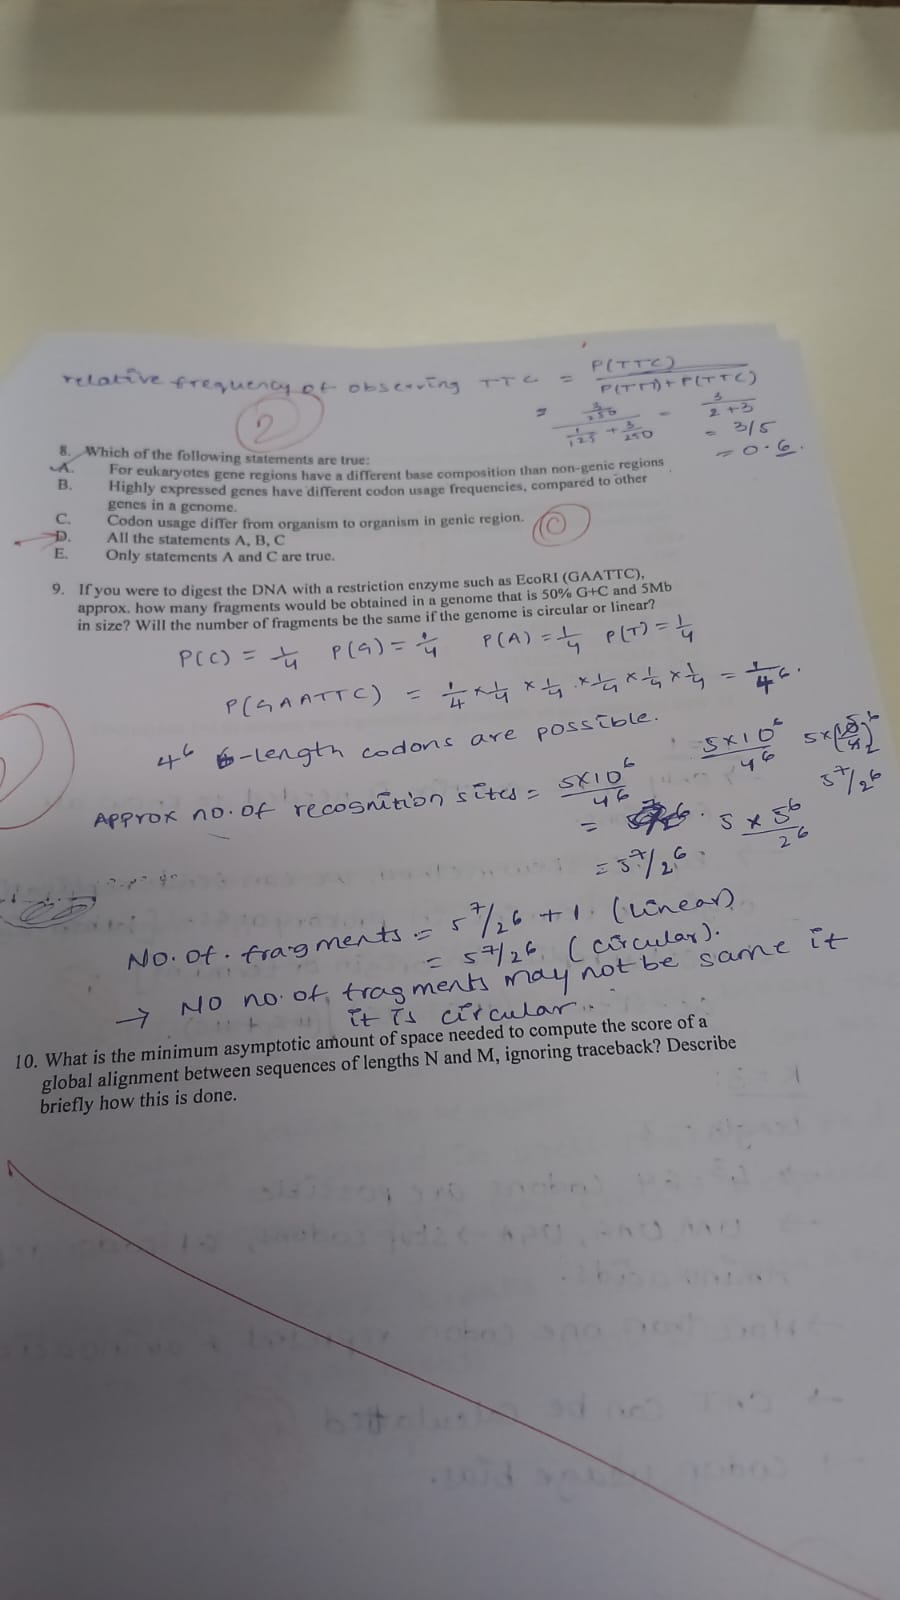 relative frequency of observing TTC = P(TTC) / P(TTT)+P(TTC)
= 3/250 / 1/125 + 3/250 = 3 / 2+3
= 3/5
= 0.6.
2
8. Which of the following statements are true:
A. For eukaryotes gene regions have a different base composition than non-genic regions
B. Highly expressed genes have different codon usage frequencies, compared to other
genes in a genome.
C. Codon usage differ from organism to organism in genic region.
0
D. All the statements A, B, C
E. Only statements A and C are true.
9. If you were to digest the DNA with a restriction enzyme such as EcoRI (GAATTC),
approx. how many fragments would be obtained in a genome that is 50% G+C and 5Mb
in size? Will the number of fragments be the same if the genome is circular or linear?
P(C) = 1/4 P(G) = 1/4 P(A) = 1/4 P(T) = 1/4
P(GAATTC) = 1/4 × 1/4 × 1/4 × 1/4 × 1/4 × 1/4 = 1/4^6.
4^6 6-length codons are possible.
Approx no. of recognition sites = 5×10^6 / 4^6
= 5^7/2^6.
5×10^6 / 4^6
5 × 5^6 / 2^6
5^7/2^6
No. of. fragments = 5^7/2^6 + 1. (linear)
= 5^7/2^6 (circular).
→ NO no. of fragments may not be same if
it is circular.
10. What is the minimum asymptotic amount of space needed to compute the score of a
global alignment between sequences of lengths N and M, ignoring traceback? Describe
briefly how this is done.